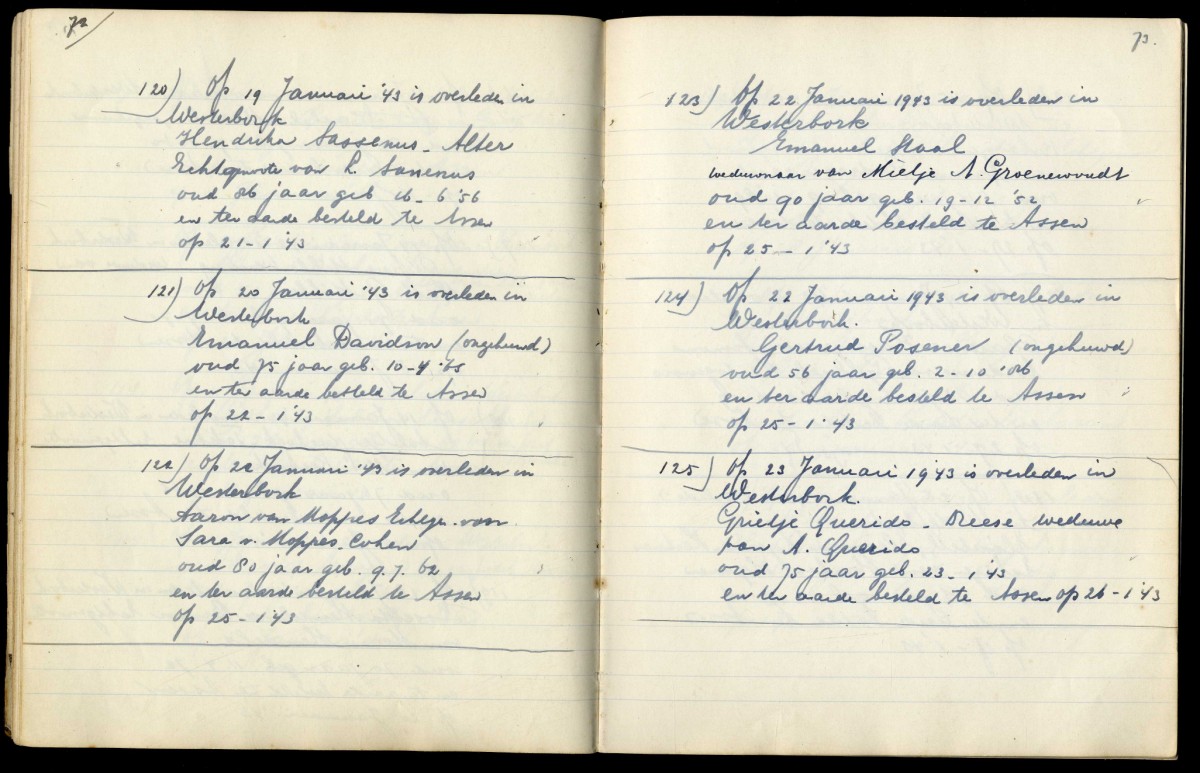 72
120) Op 19 Januari '43 is overleden in
Westerbork
Hendrika Sassenus - Alter
Echtgenoote van L. Sassenus
oud 86 jaar geb 16 - 6 '56
en ter aarde besteld te Assen
op 21 - 1 '43
121) Op 20 Januari '43 is overleden in
Westerbork
Emanuel Davidson (ongehuwd)
oud 75 jaar geb. 10-4 '65
en ter aarde besteld te Assen
op 22 - 1 '43
122) Op 22 Januari '43 is overleden in
Westerbork
Aaron van Moppes Echtgn. van
Sara v. Moppes - Cohen
oud 80 jaar geb. 9.7.62
en ter aarde besteld te Assen
op 25 - 1 '43
73.
123) Op 22 Januari 1943 is overleden in
Westerbork
Emanuel Staal
weduwnaar van Mietje A. Groenewoudt
oud 90 jaar geb. 19 - 12 '52
en ter aarde besteld te Assen
op 25 - 1 '43
124) Op 22 Januari 1943 is overleden in
Westerbork.
Gertrud Posener (ongehuwd)
oud 56 jaar geb. 2 - 10 '86
en ter aarde besteld te Assen
op 25 - 1 '43
125) Op 23 Januari 1943 is overleden in
Westerbork.
Grietje Querido - Dreese weduwe
van A. Querido
oud 75 jaar geb. 23 - 1 '43
en ter aarde besteld te Assen op 26 - 1 '43